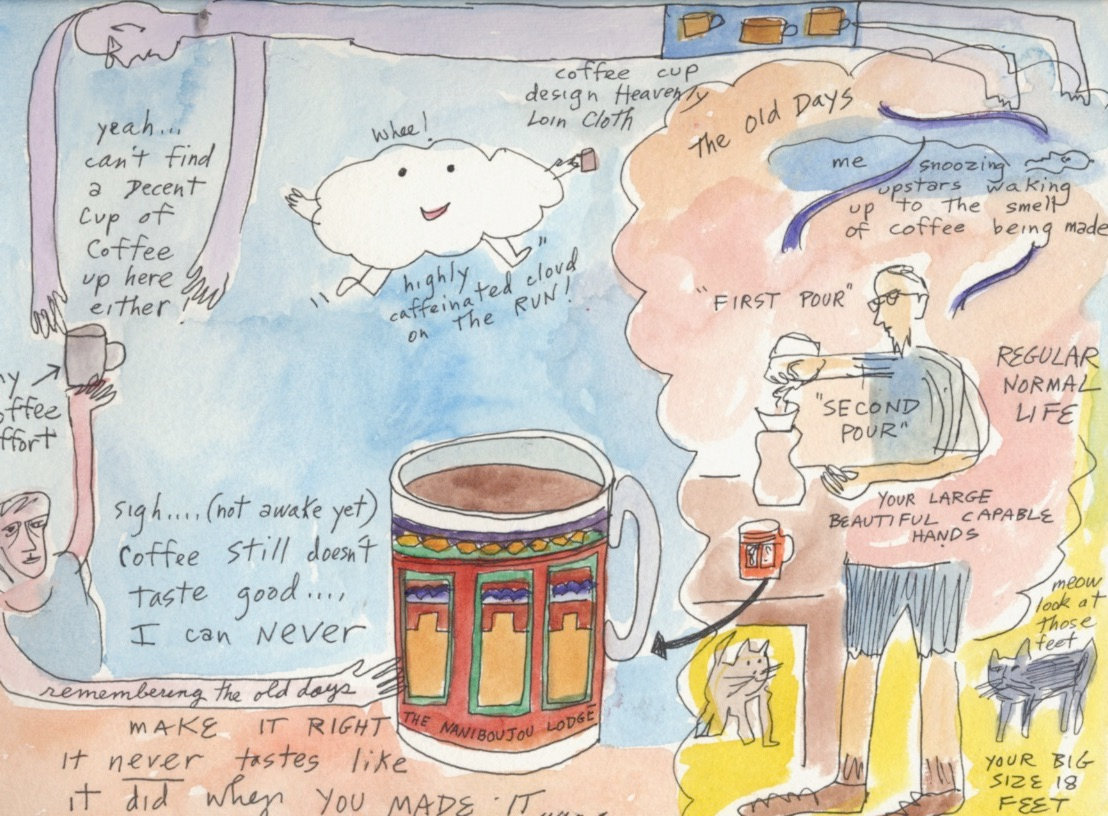 coffee cup
design Heavenly
Loin Cloth
yeah...
can't find
a Decent
Cup of
Coffee
up here
either!
whee!
"highly
caffeinated cloud"
on The RUN!
The Old Days
me snoozing
upstars waking
up to The smell
of coffee being made
"FIRST POUR"
"SECOND
POUR"
REGULAR
NORMAL
LIFE
YOUR LARGE
BEAUTIFUL CAPABLE
HANDS
meow
look at
those
feet
YOUR BIG
SIZE 18
FEET
sigh.... (not awake yet)
Coffee still doesn't
taste good....,
I can NEVER
remembering the old days
THE NANIBOUJOU LODGE
MAKE IT RIGHT
it never tastes like
it did when YOU MADE IT